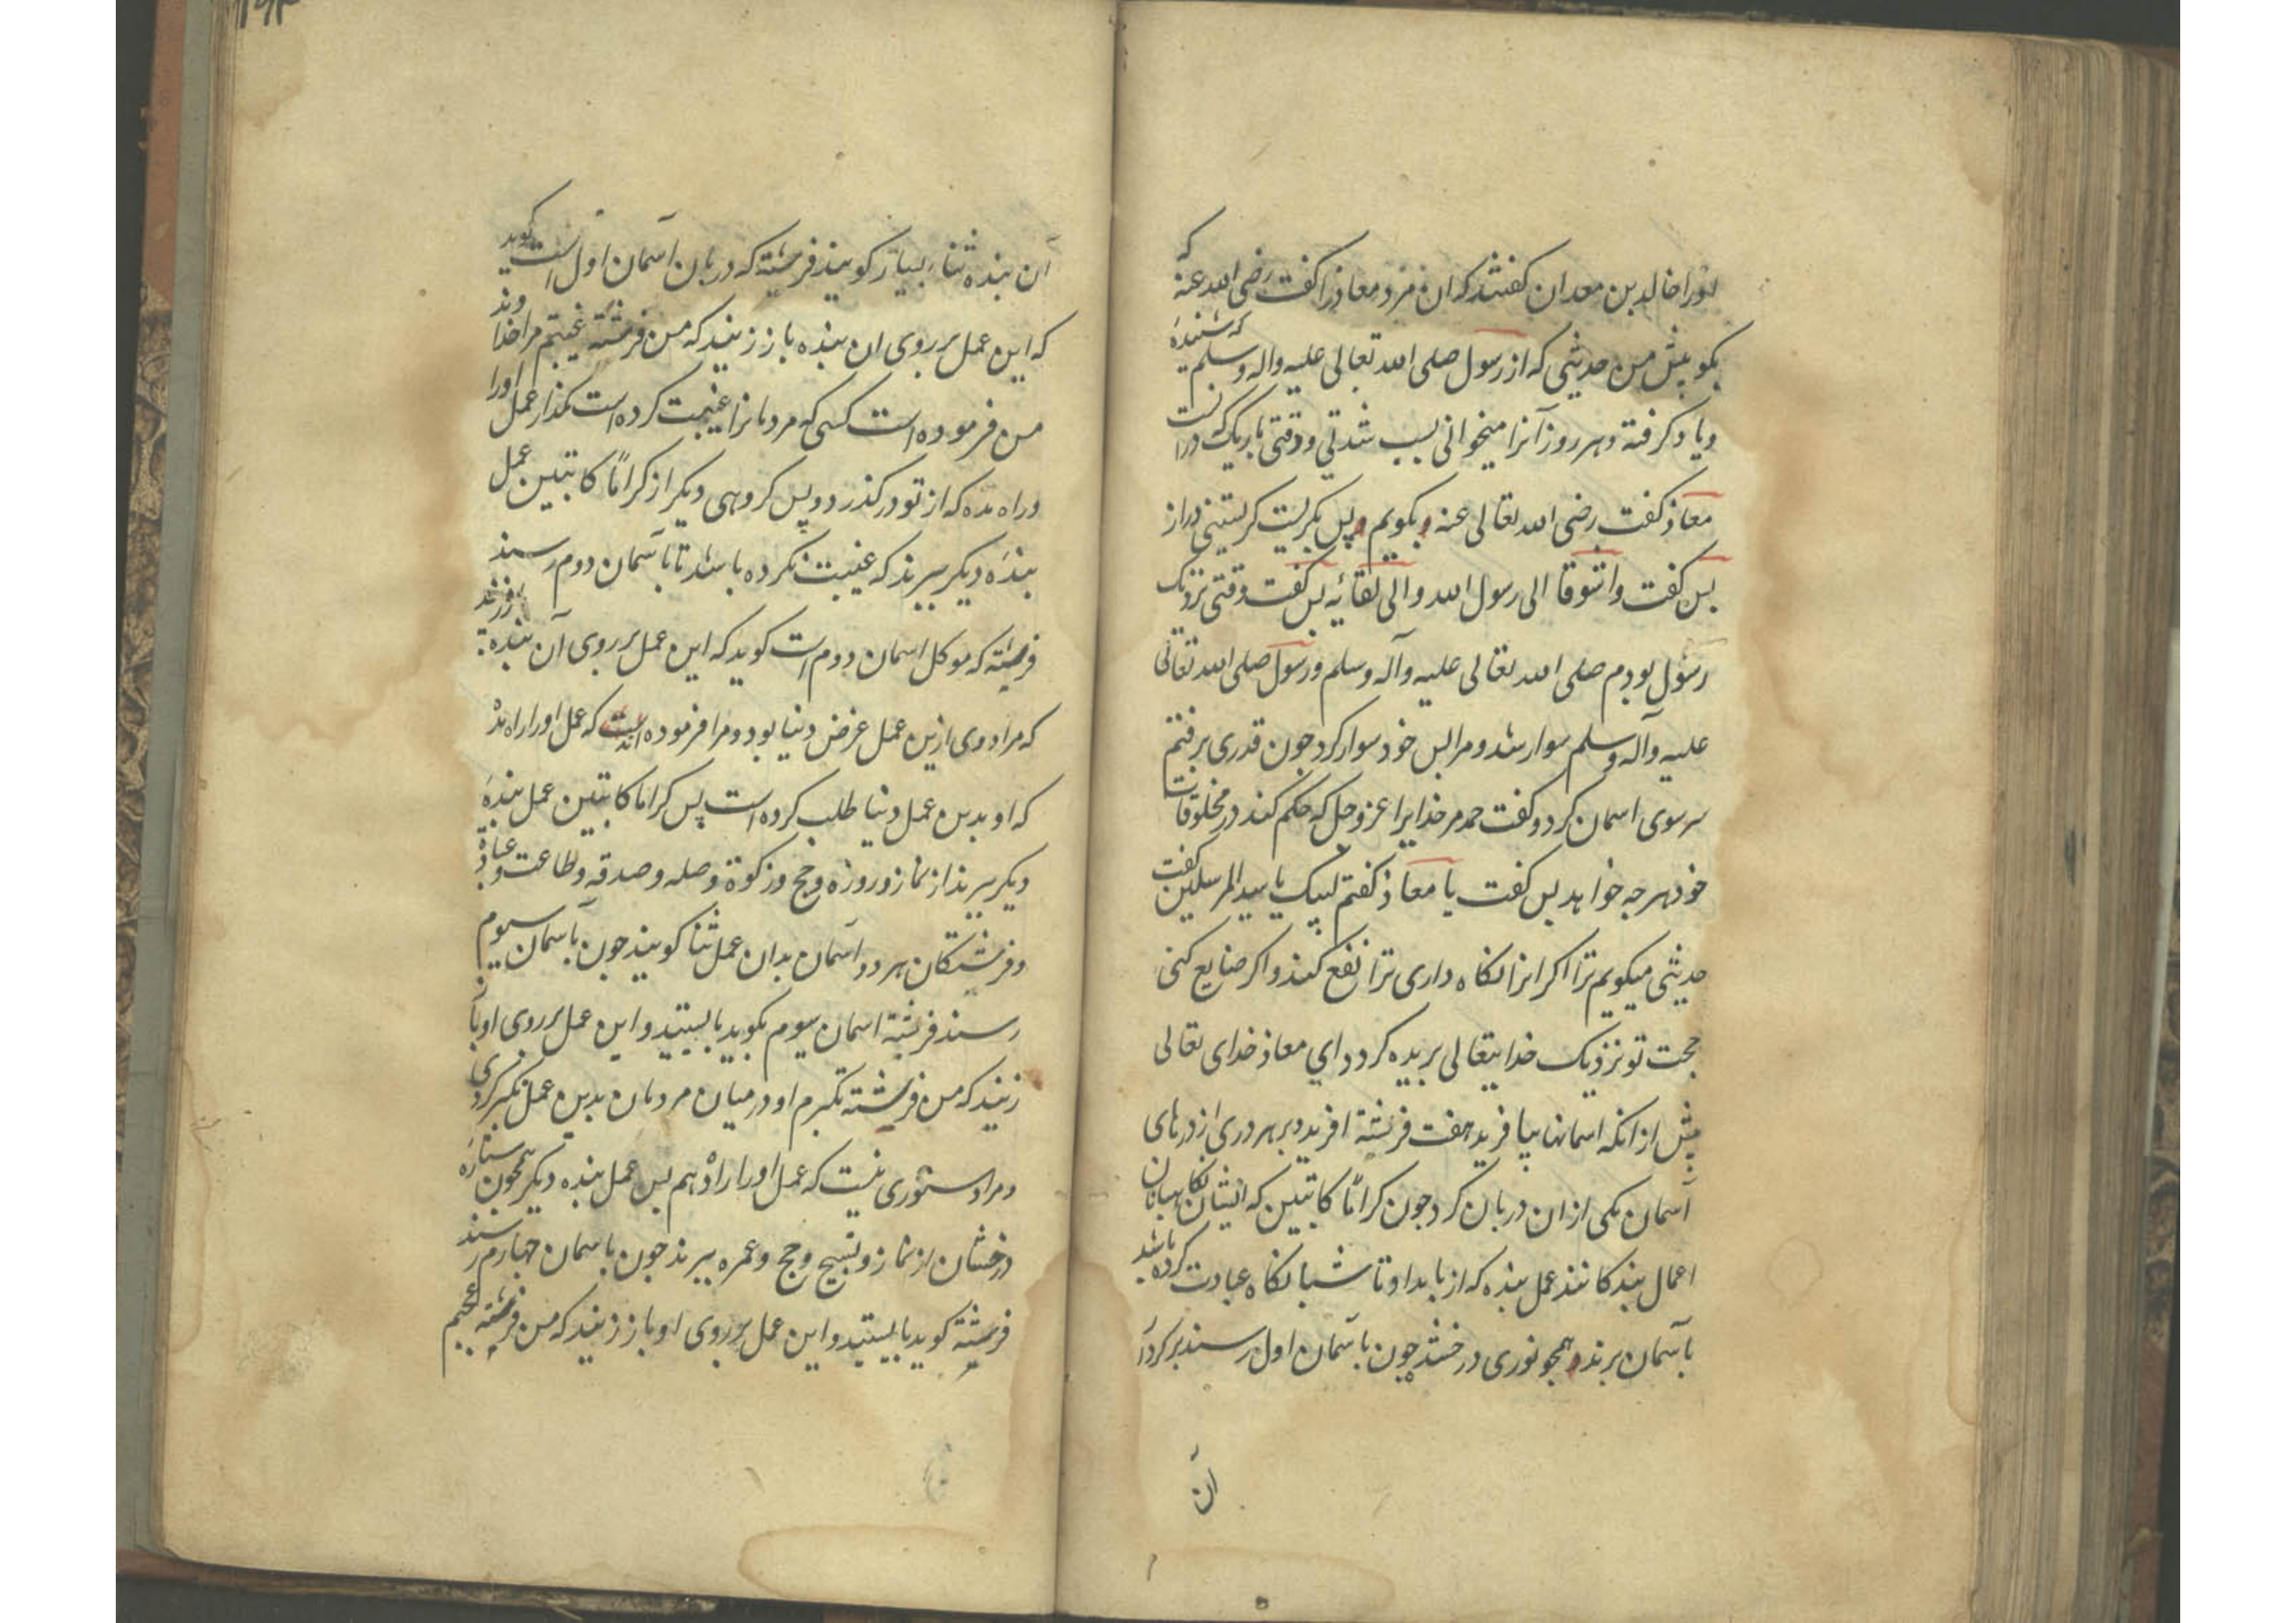 اورا خالد بن معدان گفتند که ان مرد معاذ را کفت رضی الله عنه که
بکو پیش من حدیثی که از رسول صلی الله تعالی علیه واله وسلم که شنیدۀ
ویاد کرفته وهر روز آنرا میخوانی بسبب شدتی ودقتی باریک که دراست
معاذ کفت رضی الله تعالی عنه بکویم پس بکریست کریستنی دراز
پس کفت واشوقا الی رسول الله والی لقائه پس کفت وقتی نزدیک
رسول بودم صلی الله تعالی علیه وآله وسلم ورسول صلی الله تعالی
علیه وآله وسلم سوار شد ومرا پس خود سوار کرد چون قدری برفتم
سر سوی اسمان کرد وکفت حمد مر خدایرا عز وجل که حکم کند در مخلوقات
خود هرچه خواهد پس کفت یا معاذ کفتم لبیک یا سید المرسلین کفت
حدیثی میکویم ترا اکر انرا نکاه داری ترا نفع کند واکر ضایع کنی
حجت تو نزدیک خدایتعالی بریده کردد ای معاذ خدای تعالی
پیش از انکه اسمانها بیافرید هفت فرشته افرید وبر هر دری از درهای
آسمان یکی از ان دربان کرد چون کراماً کاتبین که ایشان نکاهبانان
اعمال بندکانند عمل بنده که از بامداد تا شبانکاه عبادت کرده باشد
باسمان برند همچو نوری درخشد چون باسمان اول رسند بر کردار
ان
آن بنده ثنا بسیار کویند فرشته که دربان آسمان اول است کوید
که این عمل بر روی ان بنده باز زنید که من فرشته غیبتم مرا خداوند
من فرموده است کسی که مردمانرا غیبت کرده است مکذار عمل اورا
وراه مده که از تو درکذرد وپس کروهی دیکر از کراماً کاتبین عمل
بندۀ دیکر ببرند که غیبت نکرده باشد تا باسمان دوم رسند
فرشته که موکل اسمان دوم است کوید که این عمل بر روی آن بنده باز زنید
که مراد وی ازین عمل غرض دنیا بود ومرا فرموده است که عمل اورا راه مده
که او بدین عمل دنیا طلب کرده است پس کراماً کاتبین عمل بندۀ
دیکر ببرند از نماز وروزه وحج وزکوة وصله وصدقه وطاعت وعبادة
وفرشتکان هر دو اسمان بدان عمل ثنا کویند چون باسمان سیوم
رسند فرشته اسمان سیوم بکوید بایستید واین عمل بر روی او باز
زنید که من فرشته تکبرم او در میان مردمان بدین عمل تکبر کردی
ومرا دستوری نیست که عمل اورا راه دهم پس عمل بنده دیکر همچون ستارۀ
درخشان از نماز وتسبیح وحج وعمره ببرند چون باسمان چهارم رسند
فرشته کوید بایستید واین عمل بر روی او باز زنید که من فرشته عجبم